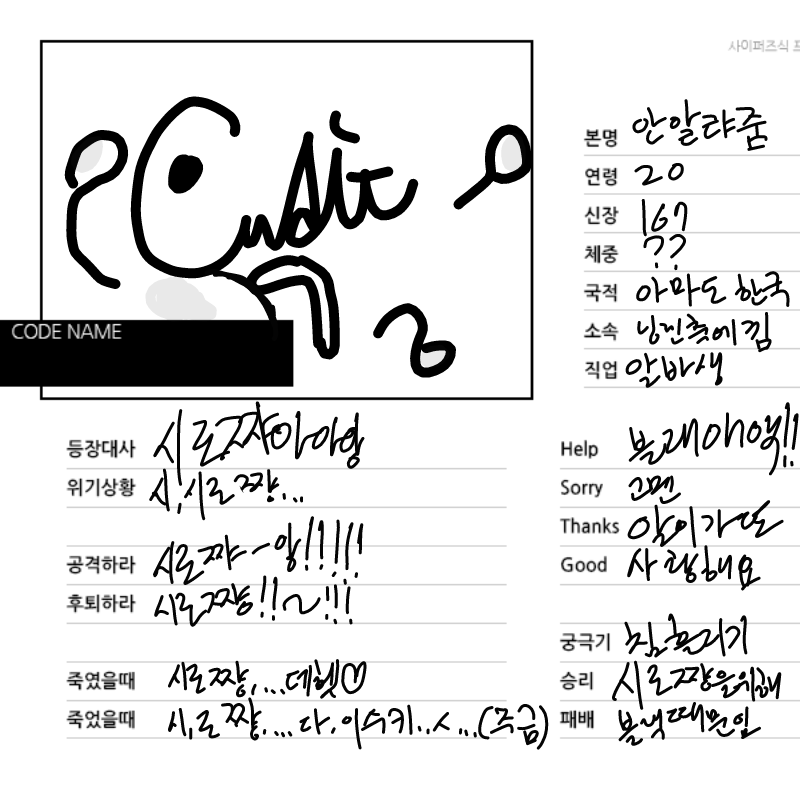 사이퍼즈식 프
Cudit
CODE NAME
본명 안알랴줌
연령 20
신장 167
체중 ??
국적 아마도 한국
소속 닝긴족에 낌
직업 알바생
등장대사 시로쨔아아앙
위기상황 시,시로쨩...
공격하라 시로쨔-앙!!!!!
후퇴하라 시로쨩!!~!!!
죽였을때 시로쨩,...데헷♡
죽었을때 시,로쨩,...다.이스키..스...(주금)
Help 블래애액!!
Sorry 고멘
Thanks 아리가또
Good 사랑해요
궁극기 침흘리기
승리 시로쨩을위해
패배 블랙때문임